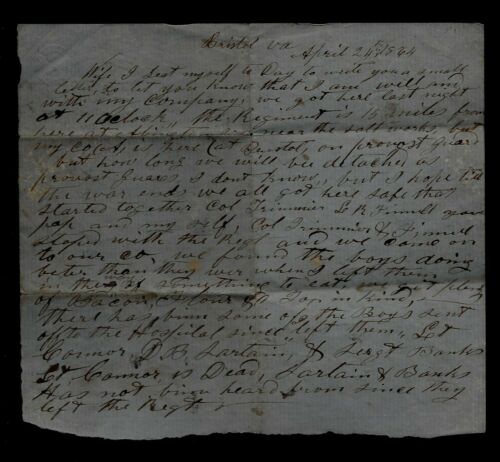 Bristol va
April 24th 1864
Wife I seat myself to Day to write you a small
letter to let you know that I am well and
with my Company, we got here last night
at 11 aclock, the Regiment is 15 miles from
here at near the salt works, but
my Co is here (at Bristol, on provost guard
but how long we will bee detached as
provost guard I dont know, but I hope till
the war ends we all got here safe that
started together Col Trimmier Lt R Finnell your
pap and my self, Col Trimmier & Finnell
stoped with the Regt and we come on
to our co, we found the boys doing
beter than they wer when I left them
in the of something to eat, we git plenty
of Bacon, Flour & in kind,
There has binn some of the Boys sent
off to the Hospital since I left them, Lt
Connor, D. B. Sartain, & Sergt Banks
Lt Connor, is Dead, Sartain & Banks
Has not binn heard from since they
left the Regt.